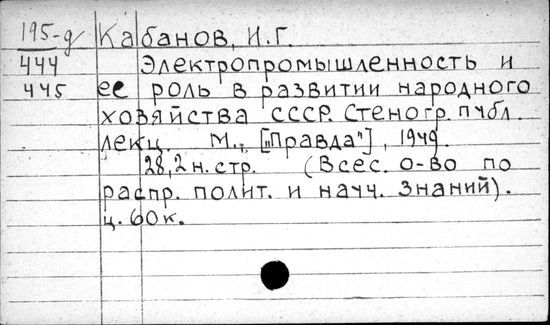 195-д Кабанов, И.Г.
444 Электропромышленность и
445 ее роль в развитии народного
хозяйства СССР. Стеногр. публ.
лекц. М., ["Правда"], 1949.
28,2 н. стр. (Всес. о-во по
распр. полит. и науч. знаний).
ц. 60 к.